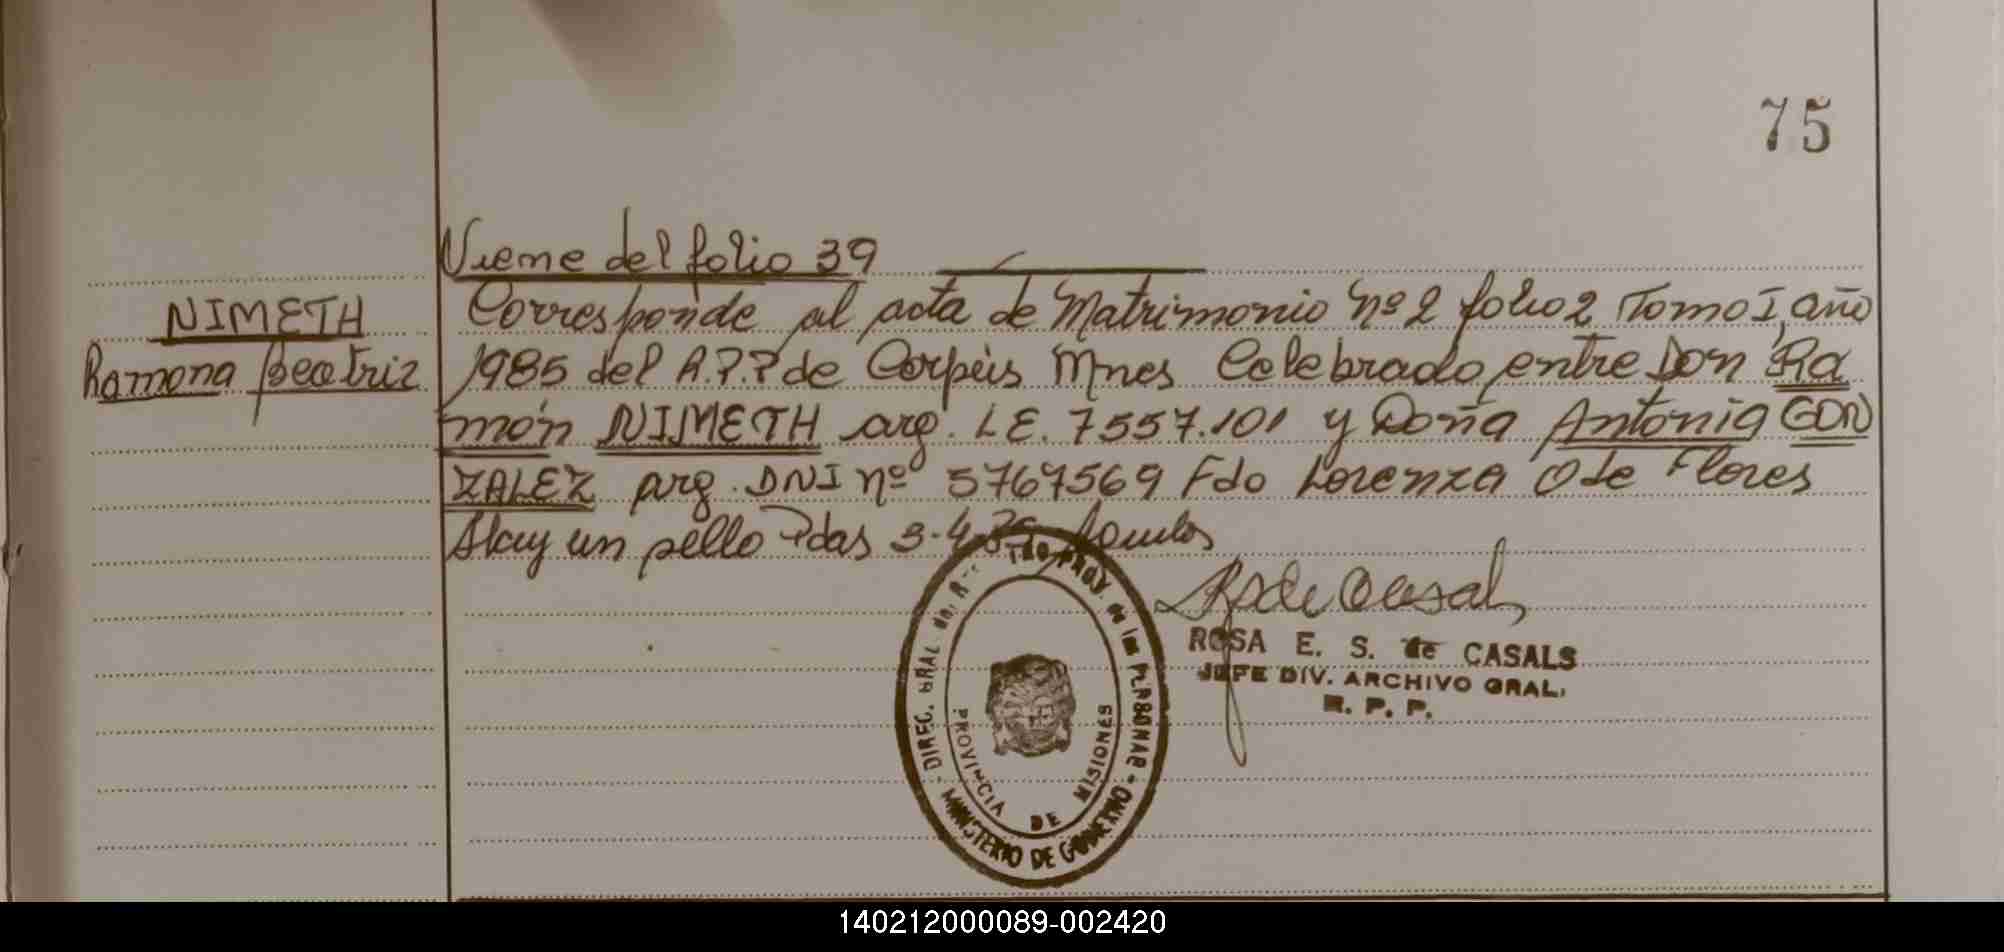 75
Viene del folio 39
NIMETH
Ramona Beatriz
Corresponde al acta de Matrimonio nº 2 folio 2 Tomo I, año
1985 del R.P.P de Corpus Mnes Celebrado entre Don Ra
món NIMETH arg. L E. 7557.101 y Doña Antonia GON
ZALEZ arg. DNI nº 5767569 Fdo Lorenza O de Flores
Hay un sello Pdas 3-4
ROSA E. S. de CASALS
JEFE DIV. ARCHIVO GRAL.
R. P. P.
DIREC. GRAL del PROV. de las PERSONAS
- MINISTERIO DE GOBIERNO -
PROVINCIA DE MISIONES
140212000089-002420